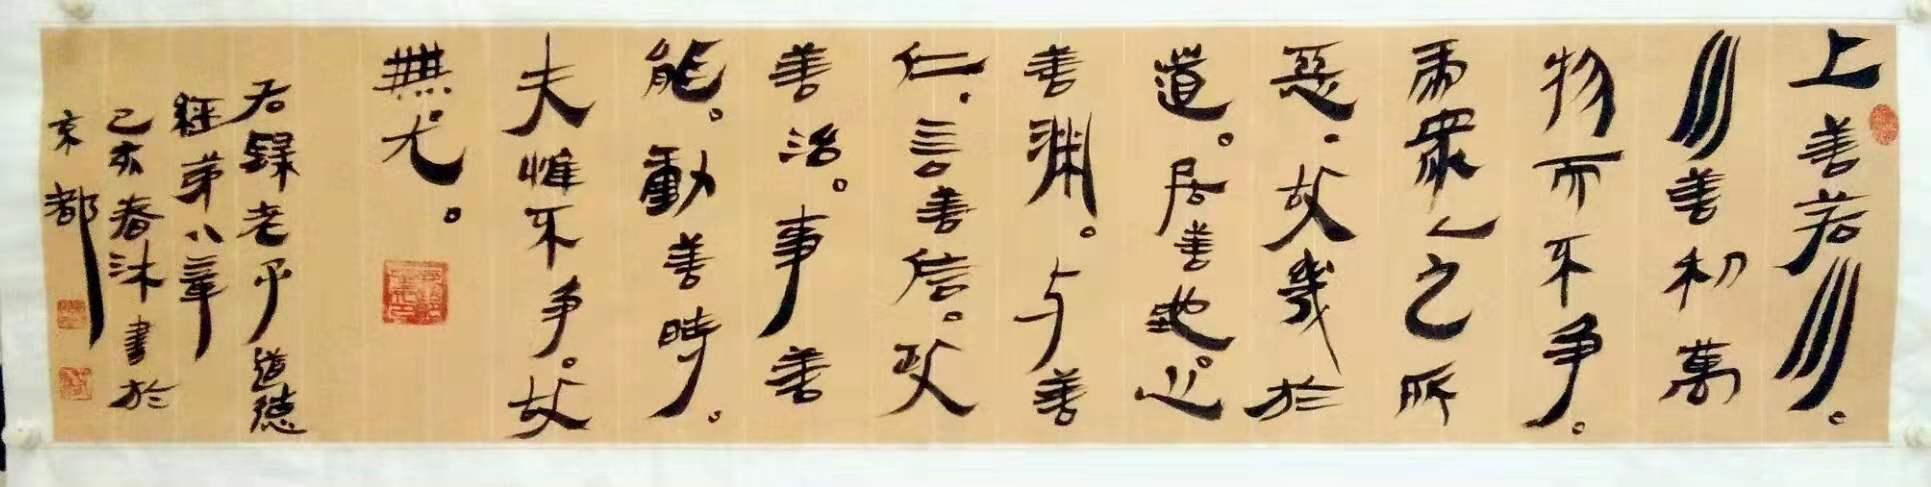 上善若水。
水善利萬
物而不争。
而衆人之所
惡。故幾於
道。居善地。心
善渊。与善
仁。言善信。政
善治。事善
能。動善時。
夫惟不争。故
無尤。
右録老子道德
經第八章
己亥春沐書於
京都